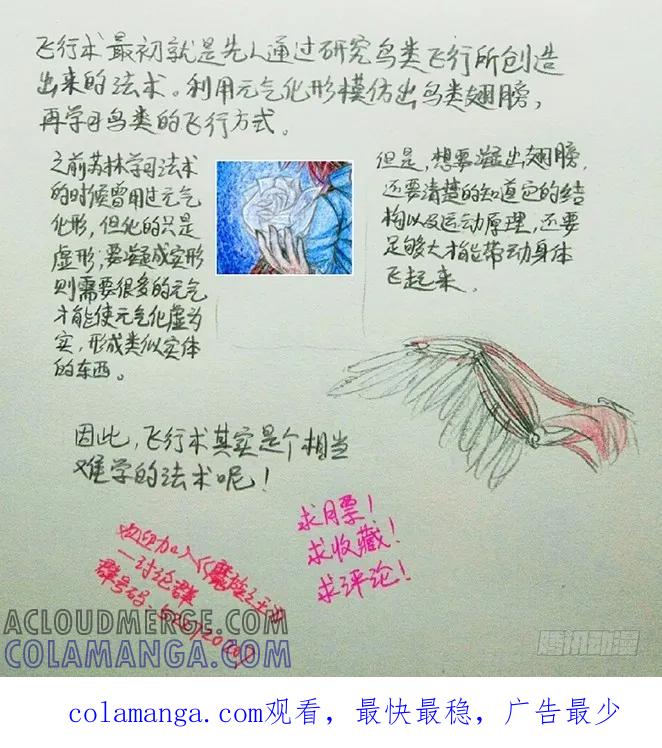 飞行术最初就是先人通过研究鸟类飞行所创造
出来的法术。利用元气化形模仿出鸟类翅膀，
再学习鸟类的飞行方式。
之前苏林学习法术
的时候曾用过元气
化形，但化的只是
虚形；要凝成实形
则需要很多的元气
才能使元气化虚为
实，形成类似实体
的东西。
但是，想要凝出翅膀，
还要清楚的知道它的结
构以及运动原理，还要
足够大才能带动身体
飞起来。
因此，飞行术其实是个相当
难学的法术呢！
求月票！
求收藏！
求评论！
欢迎加入《魔
—讨论群
群号码：
ACLOUDMERGE.COM
COLAMANGA.COM
腾讯动漫
colamanga.com观看，最快最稳，广告最少